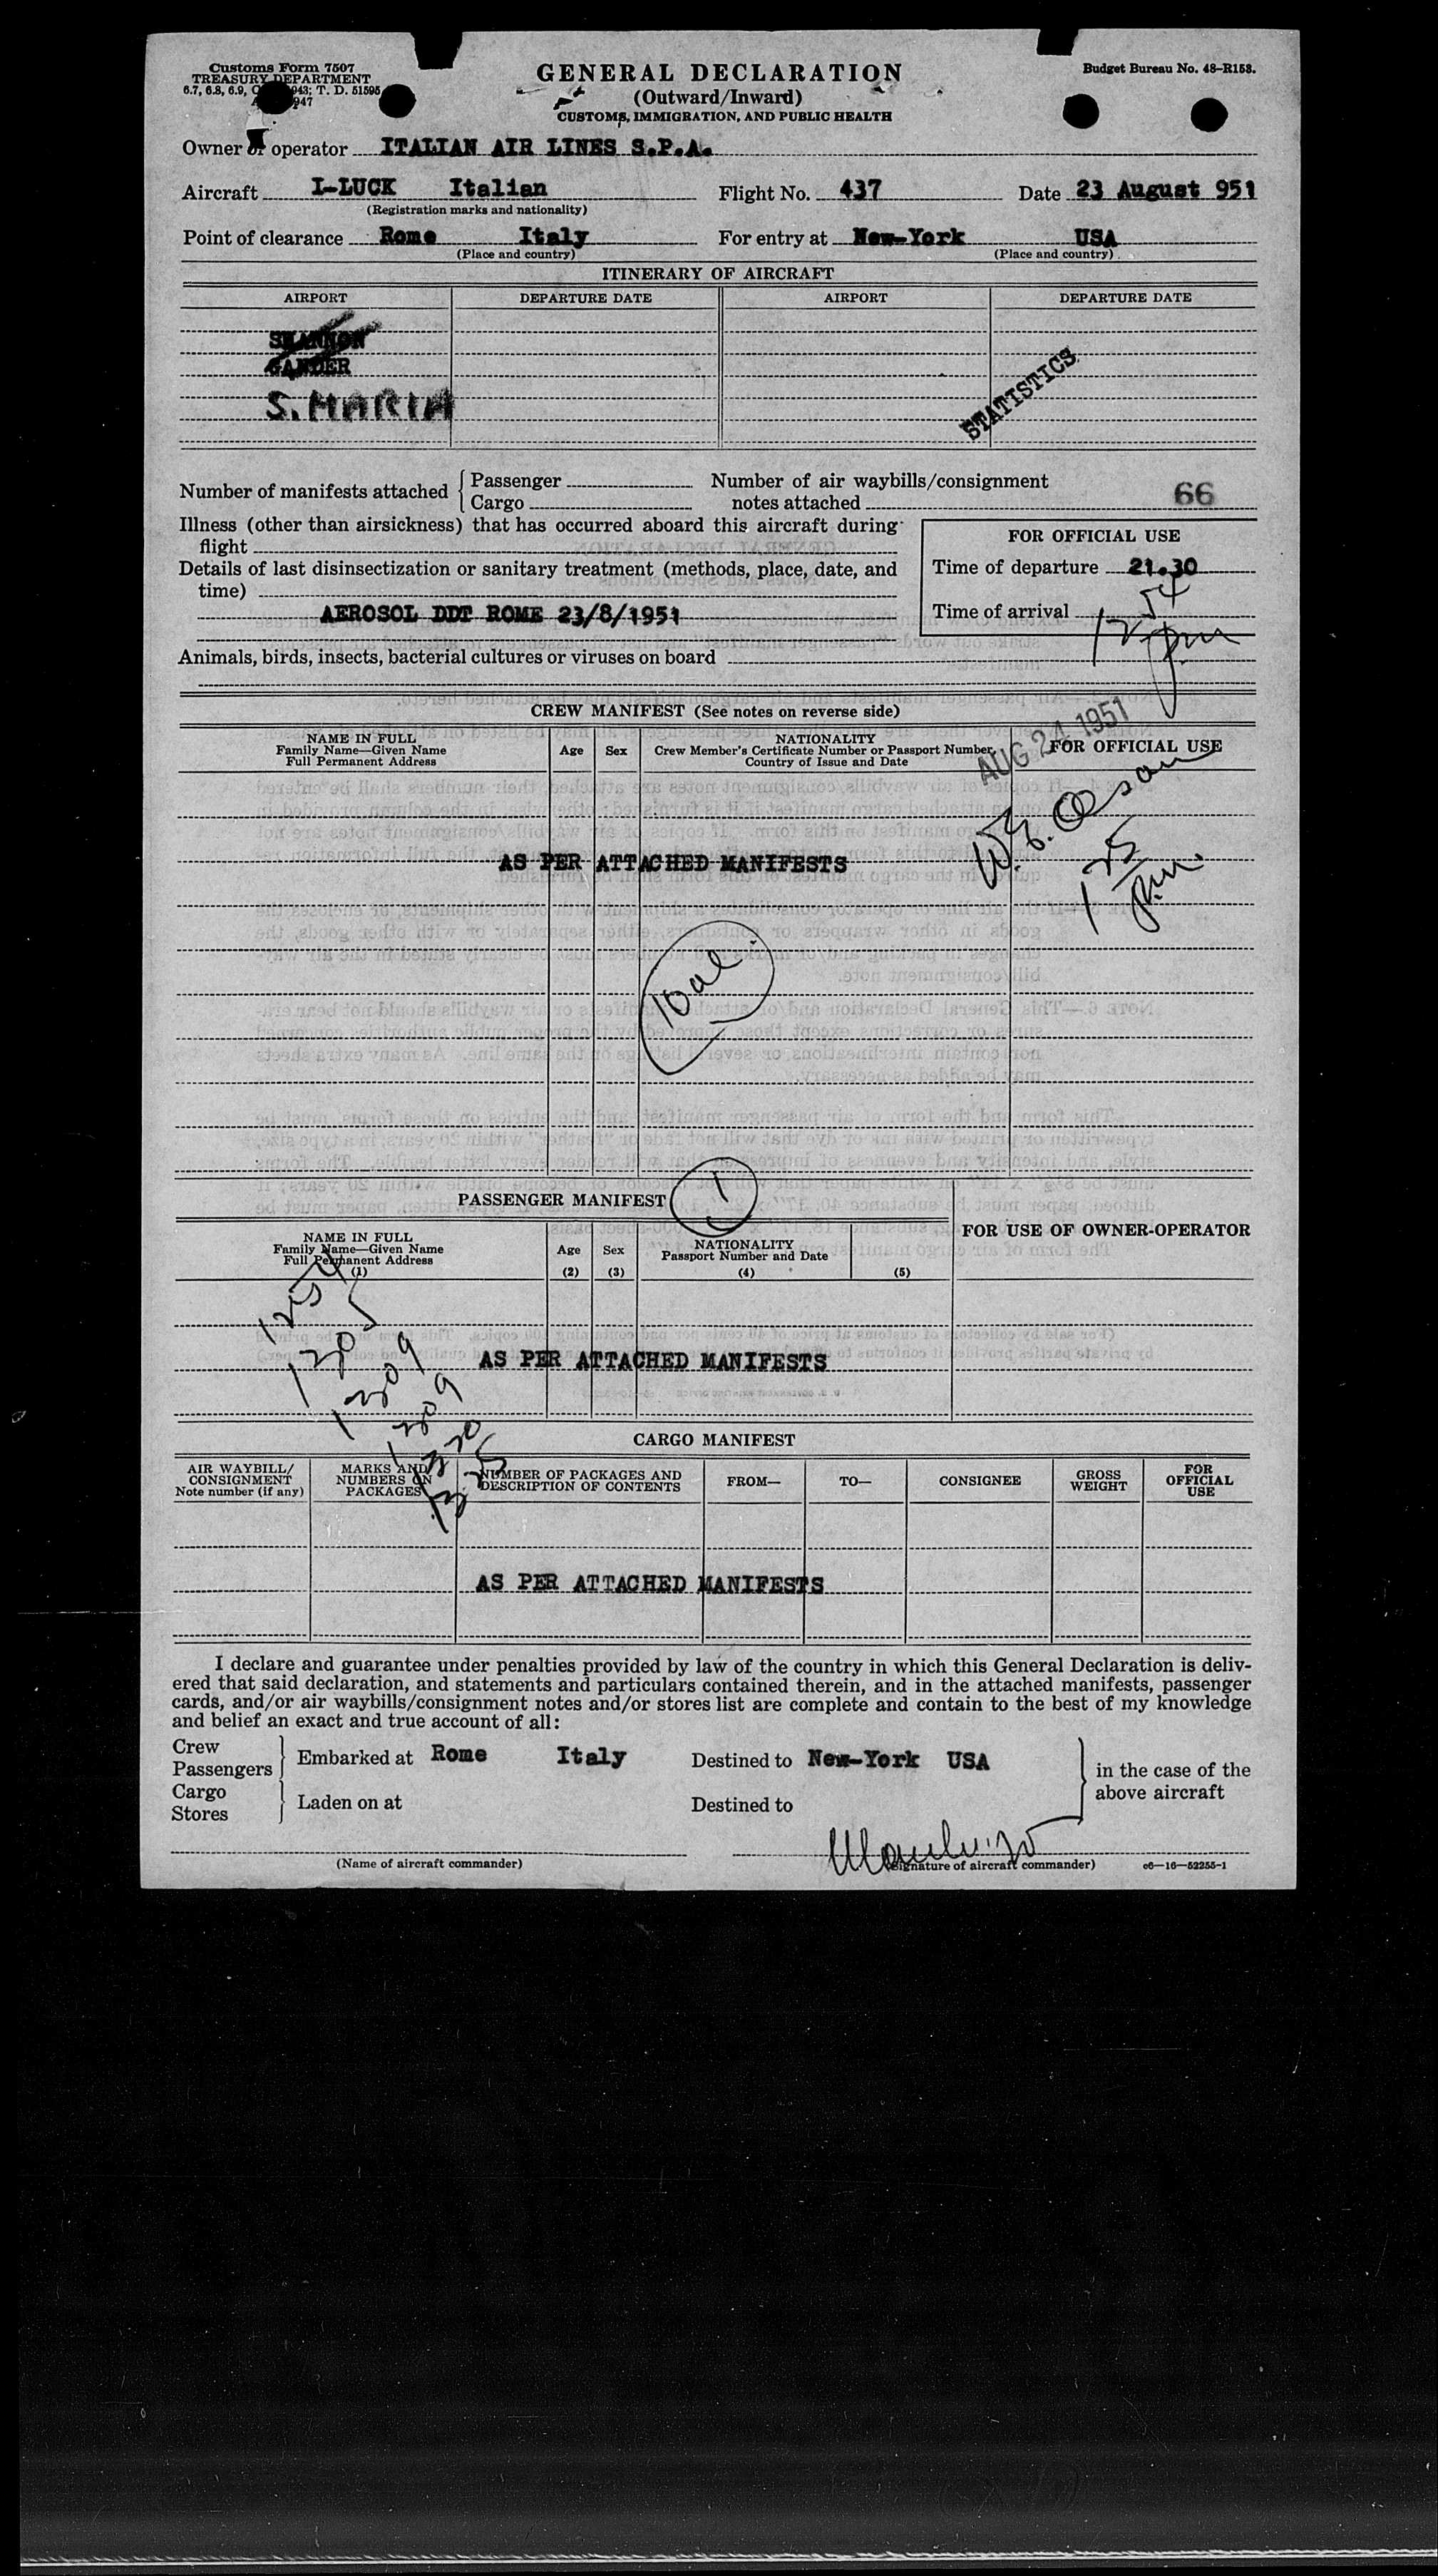 Customs Form 7507
TREASURY DEPARTMENT
6.7, 6.8, 6.9, 943; T. D. 51595
947
GENERAL DECLARATION
(Outward/Inward)
CUSTOMS, IMMIGRATION, AND PUBLIC HEALTH
Budget Bureau No. 48-R158.
Owner or operator ITALIAN AIR LINES S.P.A.
Aircraft I-LUCK Italian Flight No. 437 Date 23 August 951
(Registration marks and nationality)
Point of clearance Rome Italy For entry at New-York USA
(Place and country) (Place and country)
ITINERARY OF AIRCRAFT
AIRPORT DEPARTURE DATE AIRPORT DEPARTURE DATE
SHANNON
GANDER
S. MARIA
STATISTICS
Number of manifests attached { Passenger
Cargo
Number of air waybills/consignment
notes attached 66
Illness (other than airsickness) that has occurred aboard this aircraft during
flight
Details of last disinsectization or sanitary treatment (methods, place, date, and
time)
AEROSOL DDT ROME 23/8/1951
FOR OFFICIAL USE
Time of departure 21.30
Time of arrival 12 54 pm
Animals, birds, insects, bacterial cultures or viruses on board
CREW MANIFEST (See notes on reverse side)
AUG 24 1951
NAME IN FULL
Family Name—Given Name
Full Permanent Address
Age Sex
NATIONALITY
Crew Member's Certificate Number or Passport Number
Country of Issue and Date
FOR OFFICIAL USE
W. E.
1 25 pm.
AS PER ATTACHED MANIFESTS
PASSENGER MANIFEST
1
FOR USE OF OWNER-OPERATOR
NAME IN FULL
Family Name—Given Name
Full Permanent Address
(1)
Age
(2)
Sex
(3)
NATIONALITY
Passport Number and Date
(4) (5)
1254
1305
1309
1309
1320
1325
AS PER ATTACHED MANIFESTS
CARGO MANIFEST
AIR WAYBILL/
CONSIGNMENT
Note number (if any)
MARKS AND
NUMBERS ON
PACKAGES
NUMBER OF PACKAGES AND
DESCRIPTION OF CONTENTS
FROM— TO— CONSIGNEE
GROSS
WEIGHT
FOR
OFFICIAL
USE
AS PER ATTACHED MANIFESTS
I declare and guarantee under penalties provided by law of the country in which this General Declaration is deliv-
ered that said declaration, and statements and particulars contained therein, and in the attached manifests, passenger
cards, and/or air waybills/consignment notes and/or stores list are complete and contain to the best of my knowledge
and belief an exact and true account of all:
Crew
Passengers } Embarked at Rome Italy Destined to New-York USA
Cargo
Stores } Laden on at Destined to
in the case of the
above aircraft
(Name of aircraft commander) (Signature of aircraft commander) c6—16—52255-1